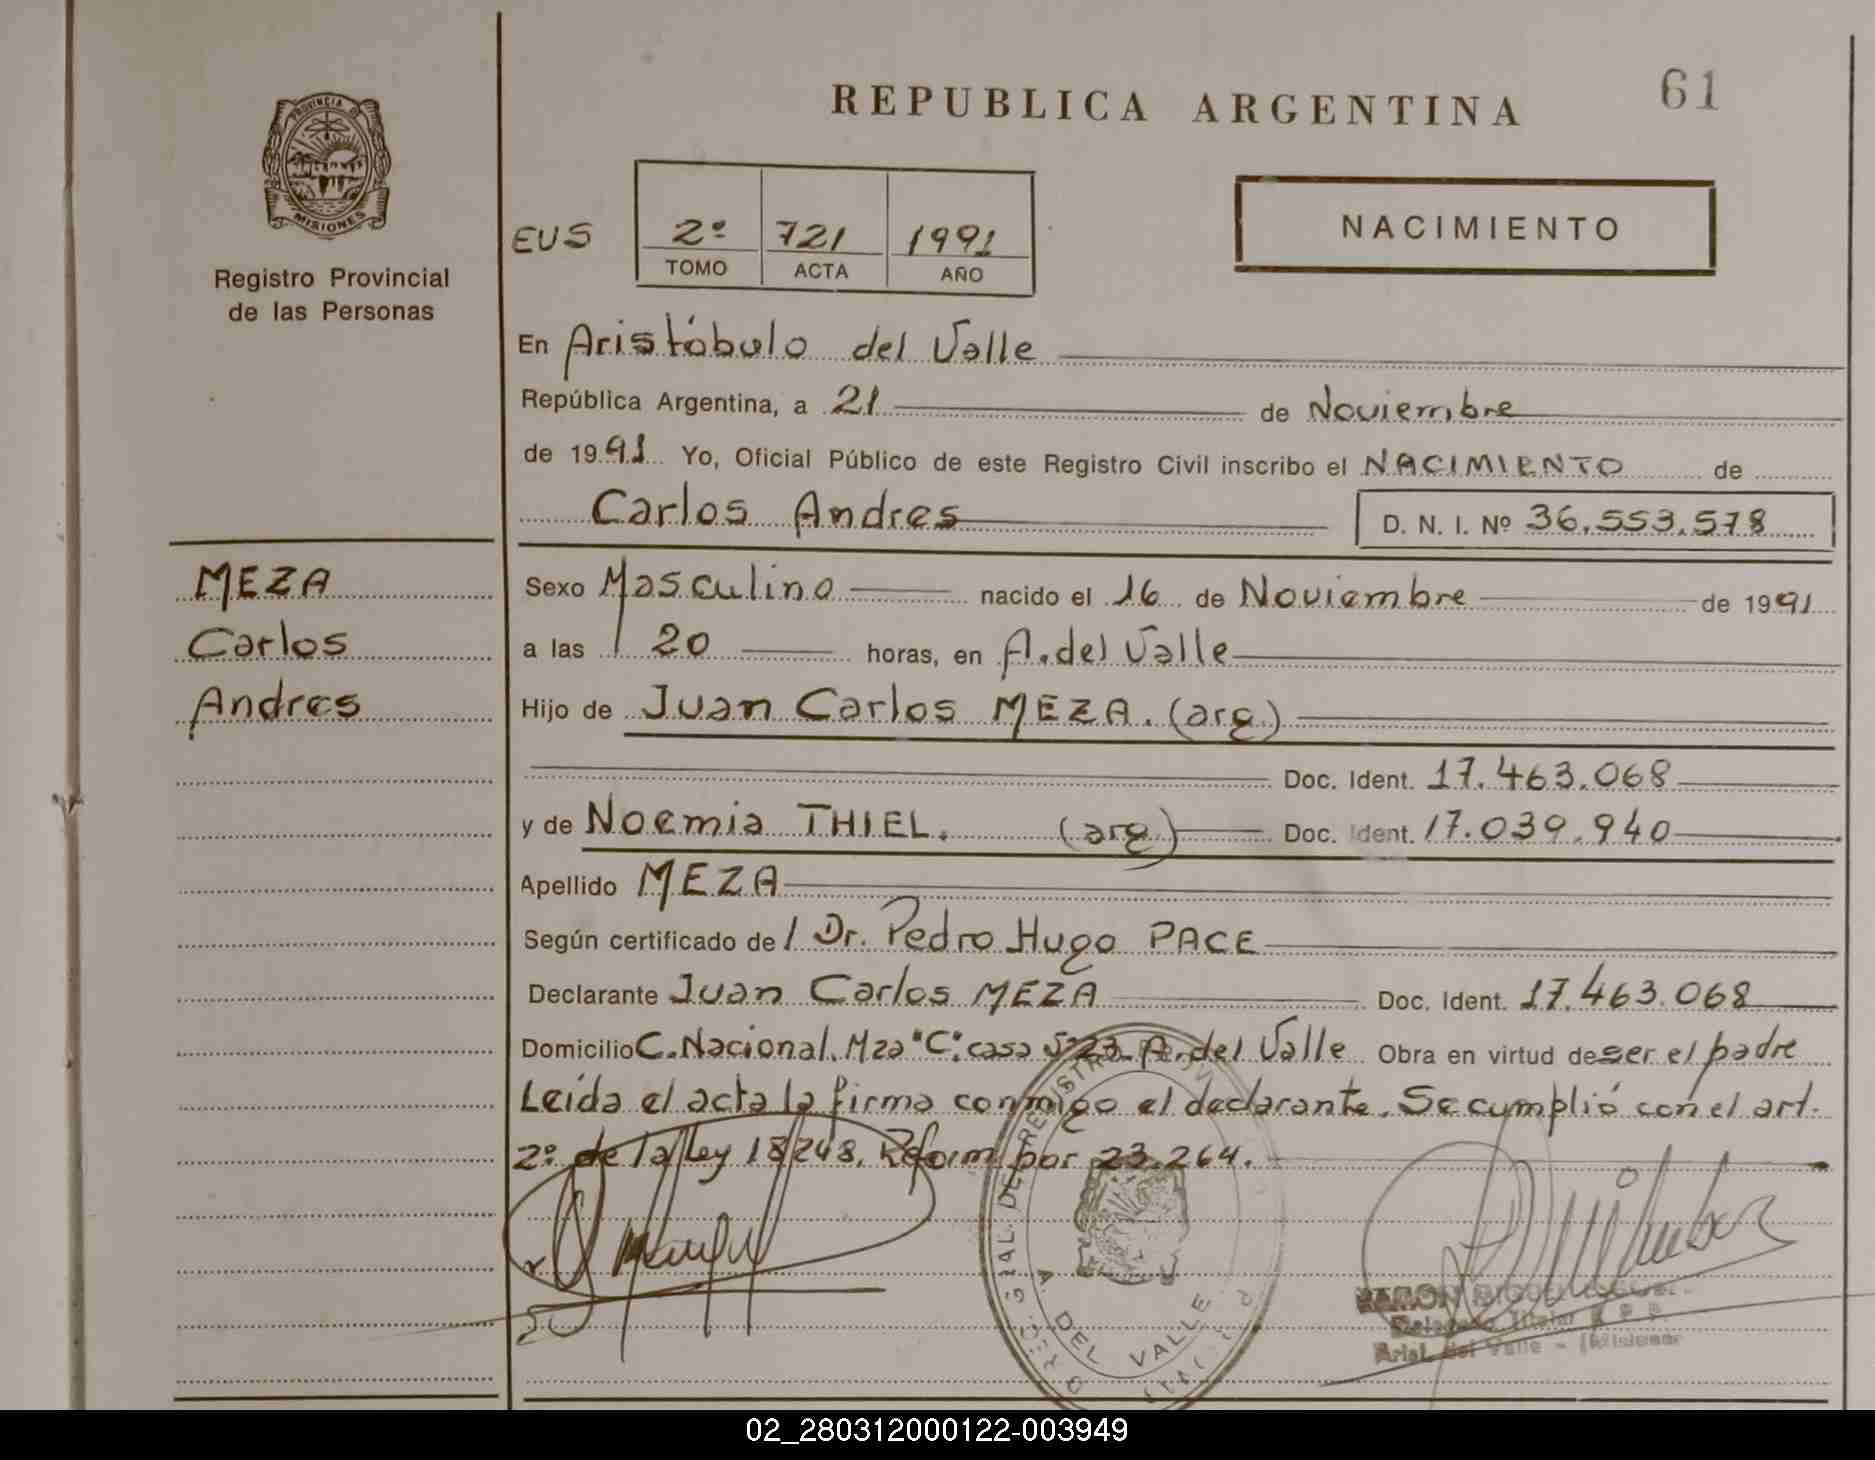 REPUBLICA ARGENTINA
61
PROVINCIA D
MISIONES
Registro Provincial
de las Personas
EUS
2º 721 1991
TOMO ACTA AÑO
NACIMIENTO
En Aristóbulo del Valle
República Argentina, a 21 de Noviembre
de 1991 Yo, Oficial Público de este Registro Civil inscribo el NACIMIENTO de
Carlos Andres D. N. I. Nº 36.553.578
MEZA
Carlos
Andres
Sexo Masculino nacido el 16 de Noviembre de 1991
a las 20 horas, en A. del Valle
Hijo de Juan Carlos MEZA. (arg.)
Doc. Ident. 17.463.068
y de Noemia THIEL. (arg.) Doc. Ident. 17.039.940
Apellido MEZA
Según certificado de Dr. Pedro Hugo PACE
Declarante Juan Carlos MEZA Doc. Ident. 17.463.068
Domicilio C. Nacional. Mza "C" casa 23. A. del Valle Obra en virtud de ser el padre
Leída el acta la firma conmigo el declarante. Se cumplió con el art.
2º de la Ley 18248. Reform por 23.264.
A. DEL VALLE
Delegado Titular R. P. P.
Arist. del Valle - (Misiones
02_280312000122-003949